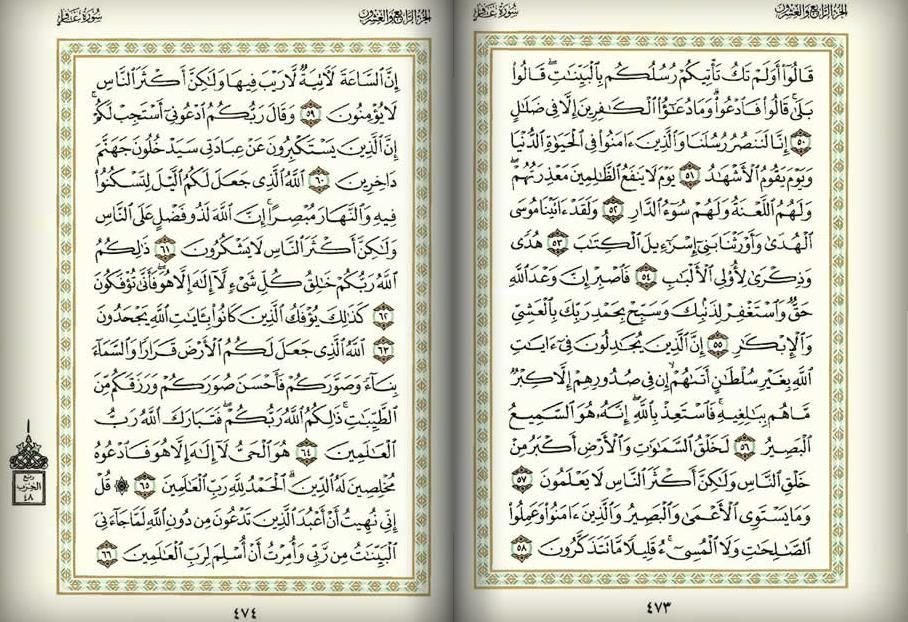 الجزء الرابع والعشرون
سورة غافر
قَالُوٓا۟ أَوَلَمْ تَكُ تَأْتِيكُمْ رُسُلُكُم بِٱلْبَيِّنَٰتِ ۖ قَالُوا۟
بَلَىٰ ۚ قَالُوا۟ فَٱدْعُوا۟ ۗ وَمَا دُعَٰٓؤُا۟ ٱلْكَٰفِرِينَ إِلَّا فِى ضَلَٰلٍ
٥٠ إِنَّا لَنَنصُرُ رُسُلَنَا وَٱلَّذِينَ ءَامَنُوا۟ فِى ٱلْحَيَوٰةِ ٱلدُّنْيَا
وَيَوْمَ يَقُومُ ٱلْأَشْهَٰدُ ٥١ يَوْمَ لَا يَنفَعُ ٱلظَّٰلِمِينَ مَعْذِرَتُهُمْ ۖ
وَلَهُمُ ٱللَّعْنَةُ وَلَهُمْ سُوٓءُ ٱلدَّارِ ٥٢ وَلَقَدْ ءَاتَيْنَا مُوسَى
ٱلْهُدَىٰ وَأَوْرَثْنَا بَنِىٓ إِسْرَٰٓءِيلَ ٱلْكِتَٰبَ ٥٣ هُدًى
وَذِكْرَىٰ لِأُو۟لِى ٱلْأَلْبَٰبِ ٥٤ فَٱصْبِرْ إِنَّ وَعْدَ ٱللَّهِ
حَقٌّ وَٱسْتَغْفِرْ لِذَنۢبِكَ وَسَبِّحْ بِحَمْدِ رَبِّكَ بِٱلْعَشِىِّ
وَٱلْإِبْكَٰرِ ٥٥ إِنَّ ٱلَّذِينَ يُجَٰدِلُونَ فِىٓ ءَايَٰتِ
ٱللَّهِ بِغَيْرِ سُلْطَٰنٍ أَتَىٰهُمْ ۙ إِن فِى صُدُورِهِمْ إِلَّا كِبْرٌ
مَّا هُم بِبَٰلِغِيهِ ۚ فَٱسْتَعِذْ بِٱللَّهِ ۖ إِنَّهُۥ هُوَ ٱلسَّمِيعُ
ٱلْبَصِيرُ ٥٦ لَخَلْقُ ٱلسَّمَٰوَٰتِ وَٱلْأَرْضِ أَكْبَرُ مِنْ
خَلْقِ ٱلنَّاسِ وَلَٰكِنَّ أَكْثَرَ ٱلنَّاسِ لَا يَعْلَمُونَ ٥٧
وَمَا يَسْتَوِى ٱلْأَعْمَىٰ وَٱلْبَصِيرُ وَٱلَّذِينَ ءَامَنُوا۟ وَعَمِلُوا۟
ٱلصَّٰلِحَٰتِ وَلَا ٱلْمُسِىٓءُ ۚ قَلِيلًا مَّا تَتَذَكَّرُونَ ٥٨
٤٧٣
الجزء الرابع والعشرون
سورة غافر
إِنَّ ٱلسَّاعَةَ لَءَاتِيَةٌ لَّا رَيْبَ فِيهَا وَلَٰكِنَّ أَكْثَرَ ٱلنَّاسِ
لَا يُؤْمِنُونَ ٥٩ وَقَالَ رَبُّكُمُ ٱدْعُونِىٓ أَسْتَجِبْ لَكُمْ ۚ
إِنَّ ٱلَّذِينَ يَسْتَكْبِرُونَ عَنْ عِبَادَتِى سَيَدْخُلُونَ جَهَنَّمَ
دَاخِرِينَ ٦٠ ٱللَّهُ ٱلَّذِى جَعَلَ لَكُمُ ٱلَّيْلَ لِتَسْكُنُوا۟
فِيهِ وَٱلنَّهَارَ مُبْصِرًا ۚ إِنَّ ٱللَّهَ لَذُو فَضْلٍ عَلَى ٱلنَّاسِ
وَلَٰكِنَّ أَكْثَرَ ٱلنَّاسِ لَا يَشْكُرُونَ ٦١ ذَٰلِكُمُ
ٱللَّهُ رَبُّكُمْ خَٰلِقُ كُلِّ شَىْءٍ لَّآ إِلَٰهَ إِلَّا هُوَ ۖ فَأَنَّىٰ تُؤْفَكُونَ
٦٢ كَذَٰلِكَ يُؤْفَكُ ٱلَّذِينَ كَانُوا۟ بِـَٔايَٰتِ ٱللَّهِ يَجْحَدُونَ
٦٣ ٱللَّهُ ٱلَّذِى جَعَلَ لَكُمُ ٱلْأَرْضَ قَرَارًا وَٱلسَّمَآءَ
بِنَآءً وَصَوَّرَكُمْ فَأَحْسَنَ صُوَرَكُمْ وَرَزَقَكُم مِّنَ
ٱلطَّيِّبَٰتِ ۚ ذَٰلِكُمُ ٱللَّهُ رَبُّكُمْ ۖ فَتَبَارَكَ ٱللَّهُ رَبُّ
ٱلْعَٰلَمِينَ ٦٤ هُوَ ٱلْحَىُّ لَآ إِلَٰهَ إِلَّا هُوَ فَٱدْعُوهُ
مُخْلِصِينَ لَهُ ٱلدِّينَ ۗ ٱلْحَمْدُ لِلَّهِ رَبِّ ٱلْعَٰلَمِينَ ٦٥ ۞ قُلْ
إِنِّى نُهِيتُ أَنْ أَعْبُدَ ٱلَّذِينَ تَدْعُونَ مِن دُونِ ٱللَّهِ لَمَّا جَآءَنِىَ
ٱلْبَيِّنَٰتُ مِن رَّبِّى وَأُمِرْتُ أَنْ أُسْلِمَ لِرَبِّ ٱلْعَٰلَمِينَ ٦٦
ربع
الحزب
٤٨
٤٧٤